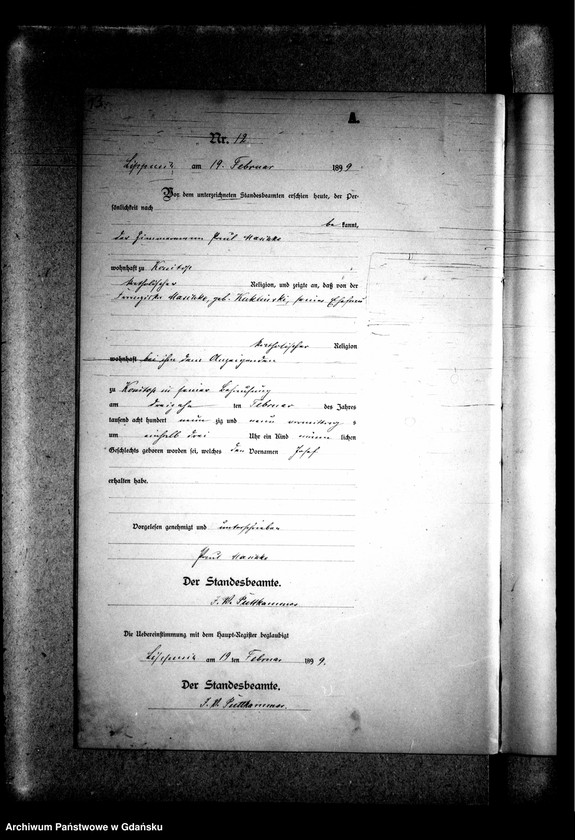 A.
Nr. 12
am 19. Februar 1899
Vor dem unterzeichneten Standesbeamten erschien heute, der Per-
sönlichkeit nach
be kannt,
der Zimmermann Paul
wohnhaft zu
katholischer Religion, und zeigte an, daß von der
geb. seiner Ehefrau
katholischer Religion
wohnhaft bei ihm dem Anzeigenden
zu in seiner Behausung
am ten Februar des Jahres
tausend acht hundert neun zig und neun vormittag s
um einhalb drei Uhr ein Kind männ lichen
Geschlechts geboren worden sei, welches den Vornamen Josef
erhalten habe.
Vorgelesen genehmigt und unterschrieben
Paul
Der Standesbeamte.
Puttkammer
Die Uebereinstimmung mit dem Haupt-Register beglaubigt
am 19 ten Februar 1899.
Der Standesbeamte.
Puttkammer.
Archiwum Państwowe w Gdańsku